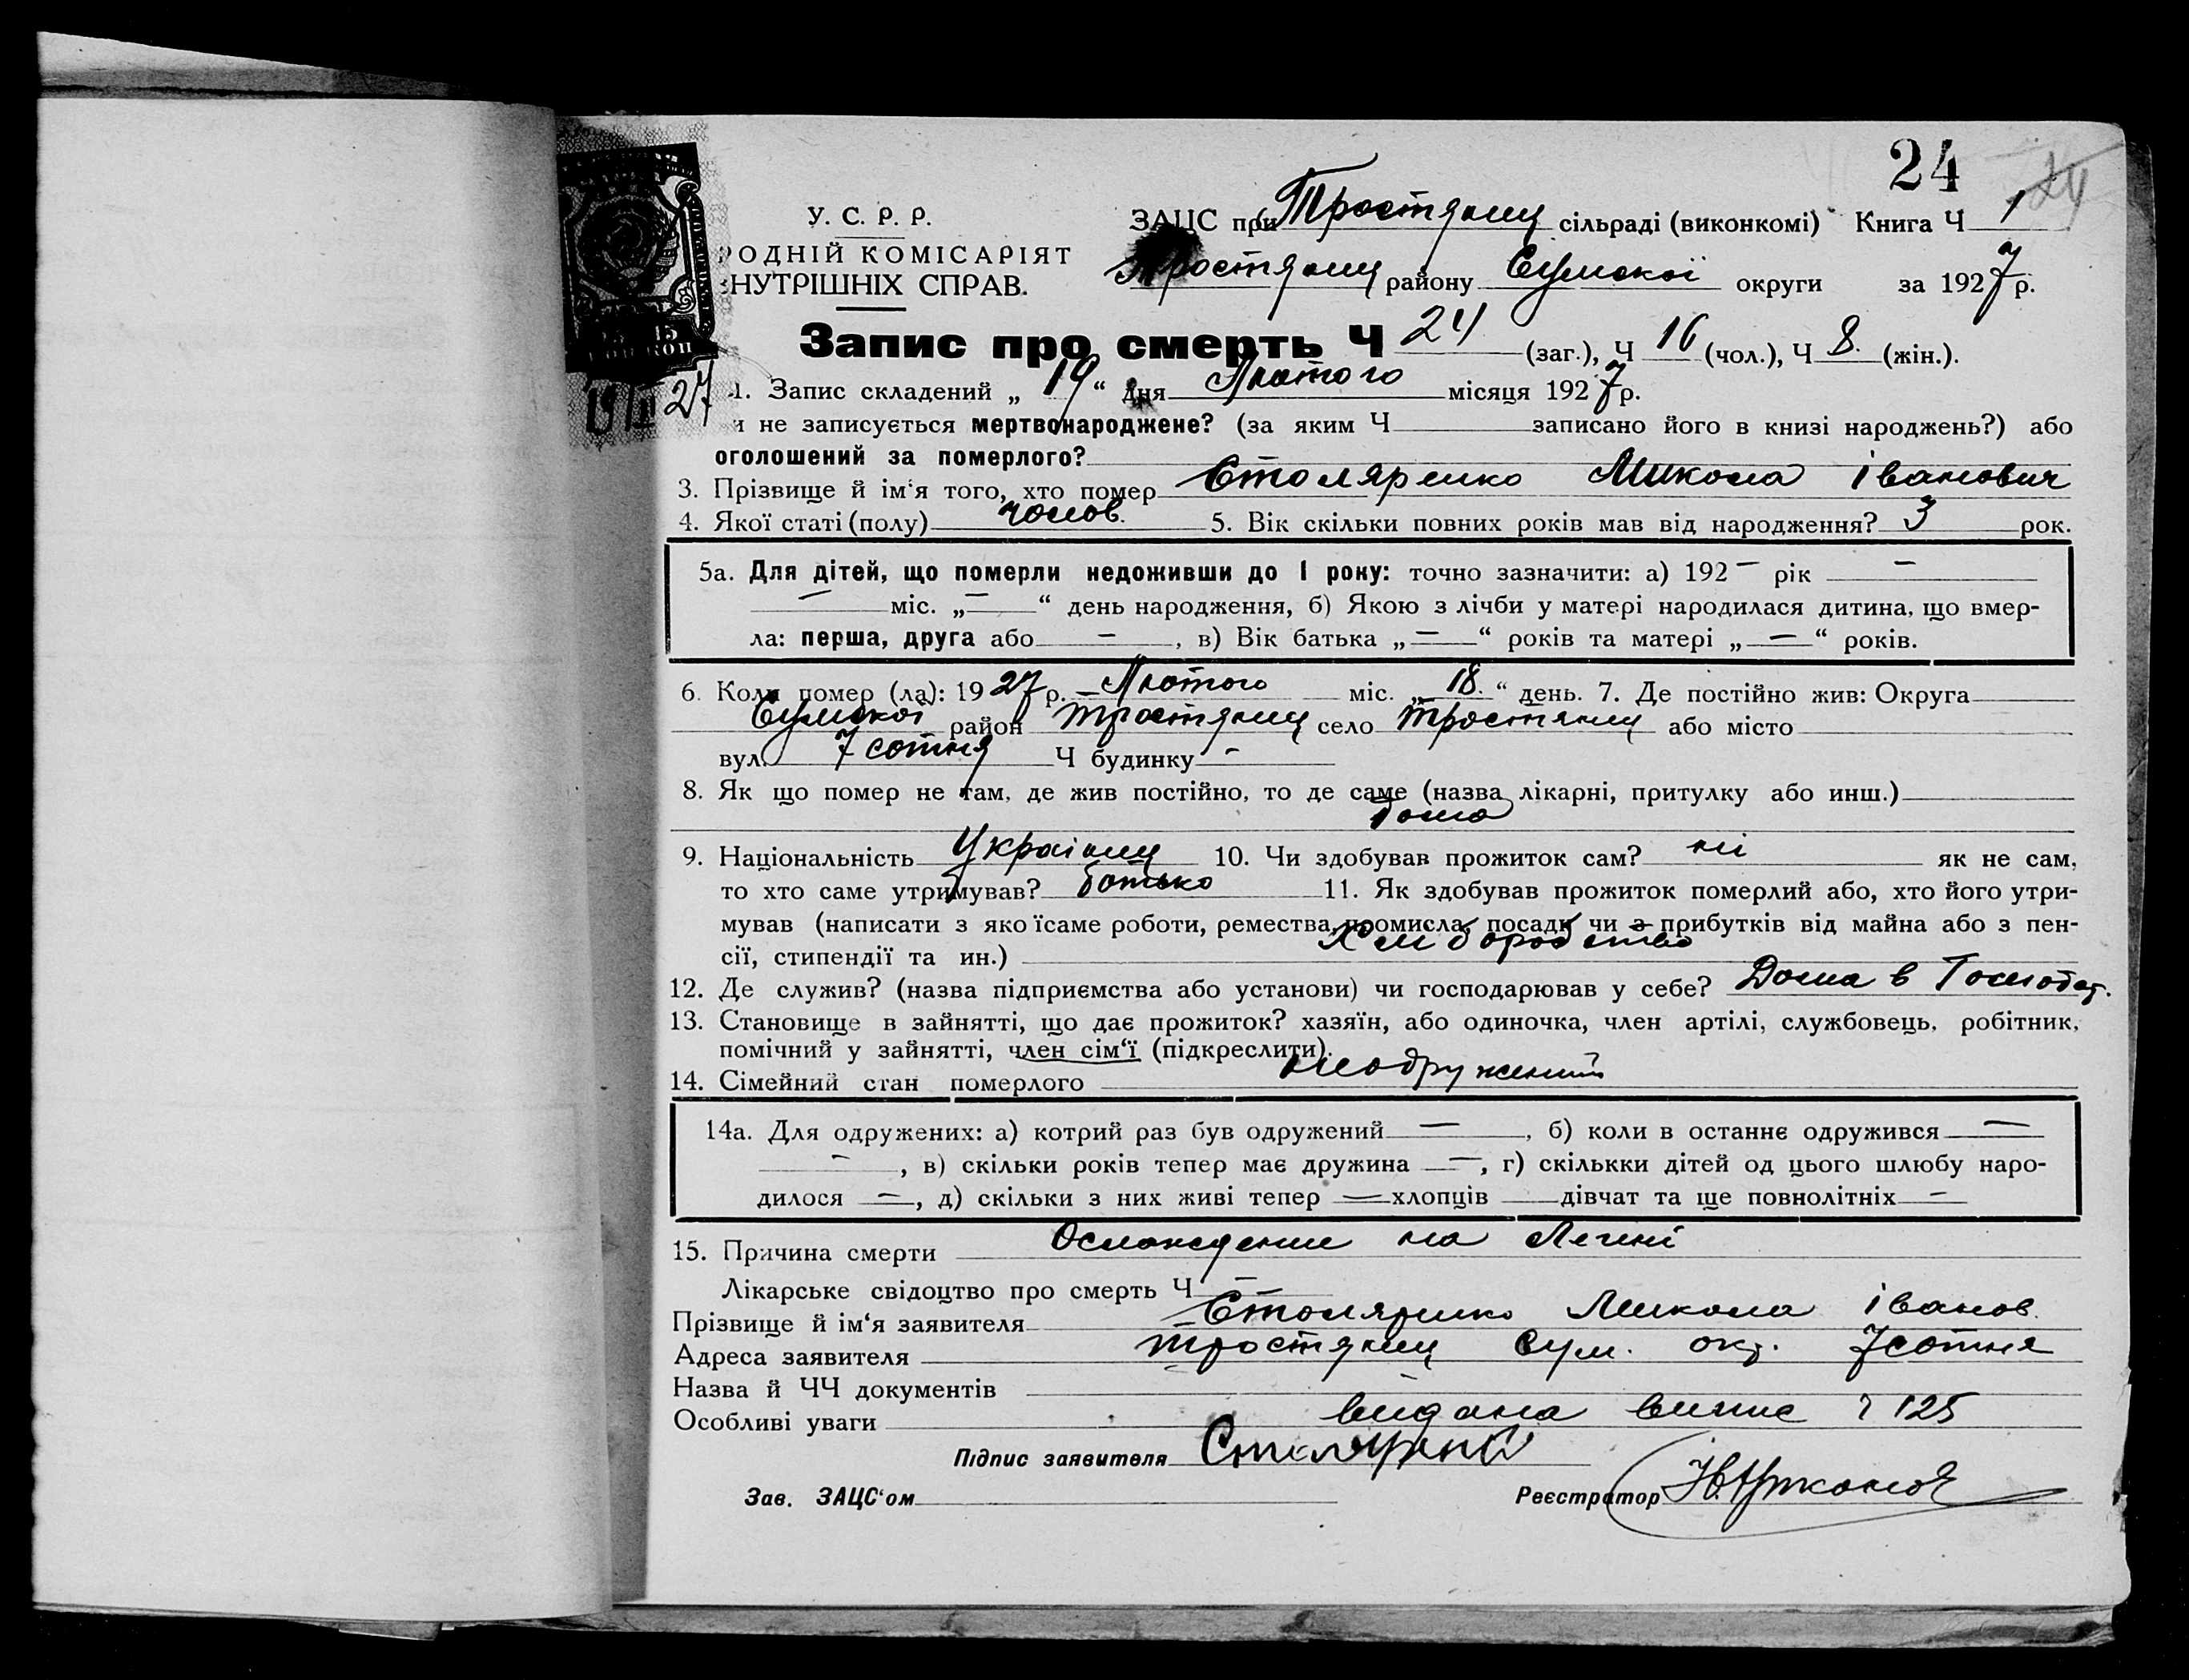 24
24
У. С. Р. Р.
РОДНІЙ КОМІСАРІЯТ
ВНУТРІШНІХ СПРАВ.
ЗАЦС при Тростянец сільраді (виконкомі) Книга Ч 1
Тростянец району Сумської округи за 1927 р.
Запис про смерть Ч 24 (заг.), Ч 16 (чол.), Ч 8. (жін.).
15
КОП КОП
19/II 27
1. Запис складений „ 19 “ дня Лютого місяця 1927 р.
и не записується мертвонароджене? (за яким Ч записано його в книзі народжень?) або
оголошений за померлого?
3. Прізвище й ім‘я того, хто помер Столяренко Микола Іванович
4. Якої статі (полу) чолов. 5. Вік скільки повних років мав від народження? 3 рок.
5а. Для дітей, що померли недоживши до 1 року: точно зазначити: а) 192 – рік –
– міс. „ – “ день народження, б) Якою з лічби у матері народилася дитина, що вмер-
ла: перша, друга або – , в) Вік батька „ – “ років та матері „ – “ років.
6. Коли помер (ла): 1927 р. Лютого міс. „ 18. “ день. 7. Де постійно жив: Округа
Сумської район Тростянец село Тростянец або місто
вул. 7 сотня Ч будинку –
8. Як що помер не там, де жив постійно, то де саме (назва лікарні, притулку або инш.)
Дома
9. Національність Українец 10. Чи здобував прожиток сам? ні як не сам,
то хто саме утримував? батько 11. Як здобував прожиток померлий або, хто його утри-
мував (написати з яко їсаме роботи, ремества, промисла, посади чи з прибутків від майна або з пен-
сії, стипендії та ин.) Хліборобство
12. Де служив? (назва підприємства або установи) чи господарював у себе? Дома в Господар.
13. Становище в зайнятті, що дає прожиток? хазяїн, або одиночка, член артілі, службовець, робітник,
помічний у зайнятті, член сім‘ї (підкреслити).
14. Сімейний стан померлого неодружений
14а. Для одружених: а) котрий раз був одружений – , б) коли в останнє одружився –
– , в) скільки років тепер має дружина – , г) скількки дітей од цього шлюбу наро-
дилося – , д) скільки з них живі тепер – хлопців дівчат та ще повнолітніх –
15. Причина смерти Ослождение на Легені
Лікарське свідоцтво про смерть Ч –
Прізвище й ім‘я заявителя Столяренко Микола Іванов.
Адреса заявителя Тростянец Сум. окр. 7 сотня
Назва й ЧЧ документів
Особливі уваги видана випис ч 125
Підпис заявителя
Зав. ЗАЦС‘ом Реєстратор